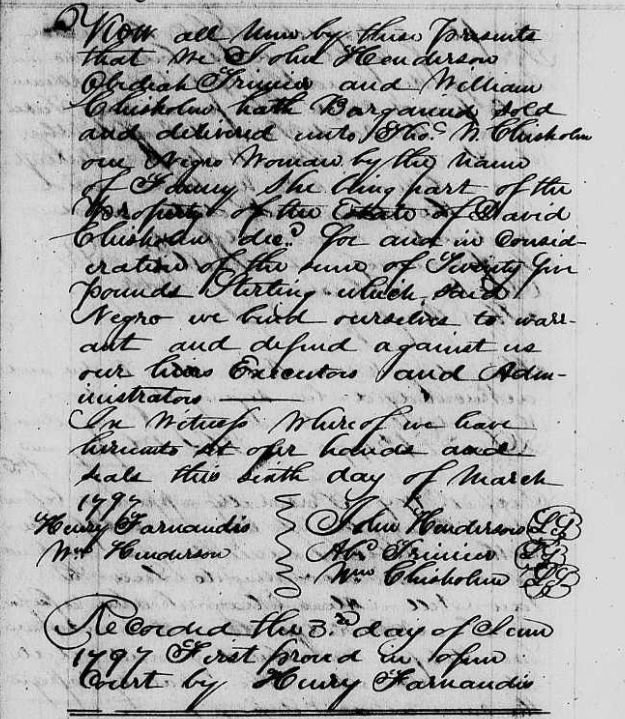 Know all Men by these Presents
that we John Henderson
Obediah Trimier and William
Chisholm hath Barganed, sold
and delivered unto Thos. N. Chisholm
one Negro Woman by the name
of Fanny She being part of the
Property of the Estate of David
Chisholm decd. for and in Consid-
eration of the sum of Twenty five
pounds Sterling which said
Negro we bind ourselves to warr-
ant and defend against us
our heirs Executors and Adm-
inistrators
In Witness Whereof we have
hereunto set our hands and
seals this sixth day of March
1797
Henry Farnandis
Wm Henderson
John Henderson LS
Abd. Trimier LS
Wm Chisholm LS
Recorded the 3rd day of June
1797 First proved in open
Court by Henry Farnandis